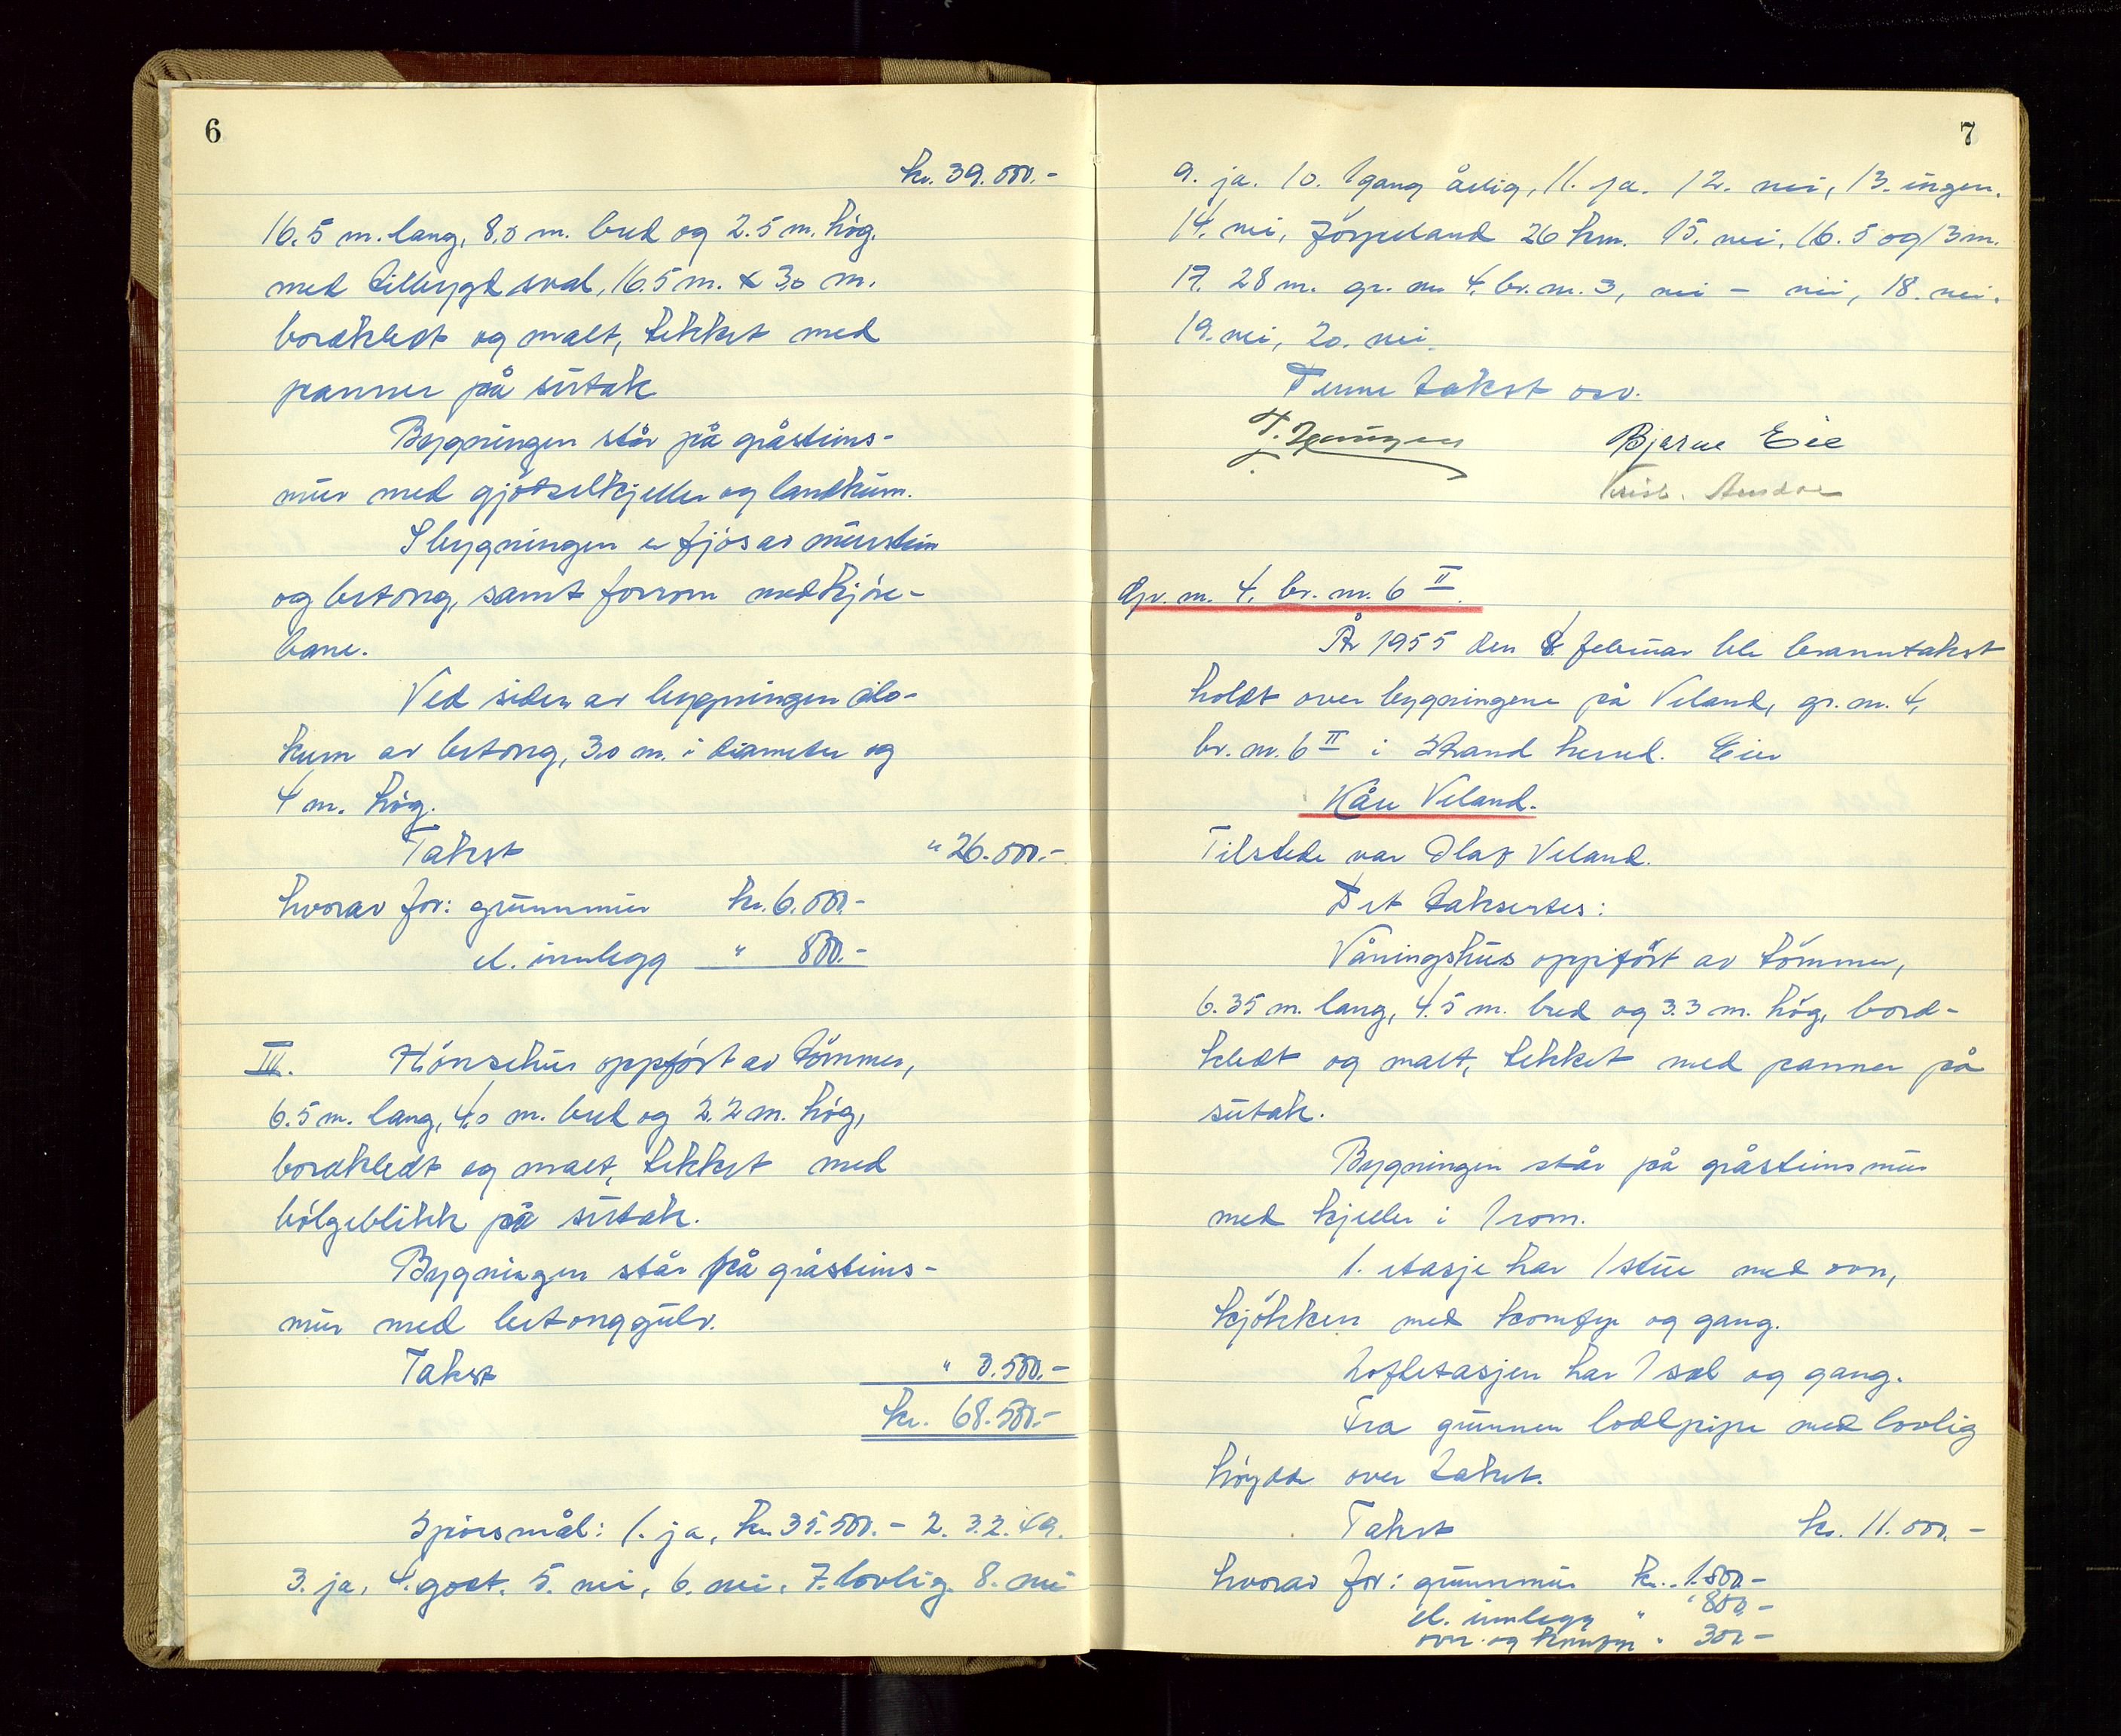 6
kr. 39.000.-
16.5 m. lang, 8.0 m. bred og 2.5 m. høg.
med tilbygd sval, 16.5 m. x 3.0 m.
bordkledt og malt, tekket med
panner på sutak
Bygningen står på gråsteins-
mur med gjødselkjeller og landkum.
I bygningen er fjös av murstein
og betong, samt forrom med kjøre-
bane.
Ved siden av bygningen silo-
kum av betong, 3.0 m. i diameter og
4 m. høg.
Takst " 26.000.-
hvorav for: grunnmur kr. 6.000.-
el. innlegg " 800.-
III. Hönsehus oppfört av tömmer,
6.5 m. lang, 4.0 m. bred og 2.2 m. høg,
bordkledt og malt, tekket med
bölgeblikk på sutak.
Bygningen står på gråsteins-
mur med betonggulv.
Takst " 3.500.-
kr. 68.500.-
Spörsmål: 1. ja, kr. 35.500.- 2. 3.2.49.
3. ja, 4. godt. 5. nei, 6. nei. 7. lovlig. 8. nei
7
9. ja. 10. 1 gang årlig, 11. ja. 12. nei, 13. ingen.
14. nei, Jörpeland 26 km. 15. nei. 16. 5 og 13 m.
17. 28 m. gr. nr. 4, br. nr. 3, nei - nei, 18. nei.
19. nei, 20. nei.
Denne takst osv.
Bjarne Eie
Gr. nr. 4, br. nr. 6 II.
År 1955 den 8. februar ble branntakst
holdt over bygningene på Veland, gr. nr. 4,
br. nr. 6 II i Strand herred. Eier
Kåre Veland.
Tilstede var Olav Veland.
Det taksertes:
Våningshus oppifört av tömmer,
6.35 m. lang, 4.5 m. bred og 3.3 m. høg, bord-
kledt og malt, tekket med panner på
sutak.
Bygningen står på gråsteinsmur
med kjeller i 1 rom.
1. etasje har 1 stue med ovn,
kjökken med komfyr og gang.
Loftetasjen har 1 sal og gang.
Fra grunnen loddpipe med lovlig
høyde over taket.
Takst kr. 11.000.-
hvorav for: grunnmur kr. 1.500.-
el. innlegg " 800.-
ovn og komfyr " 300.-